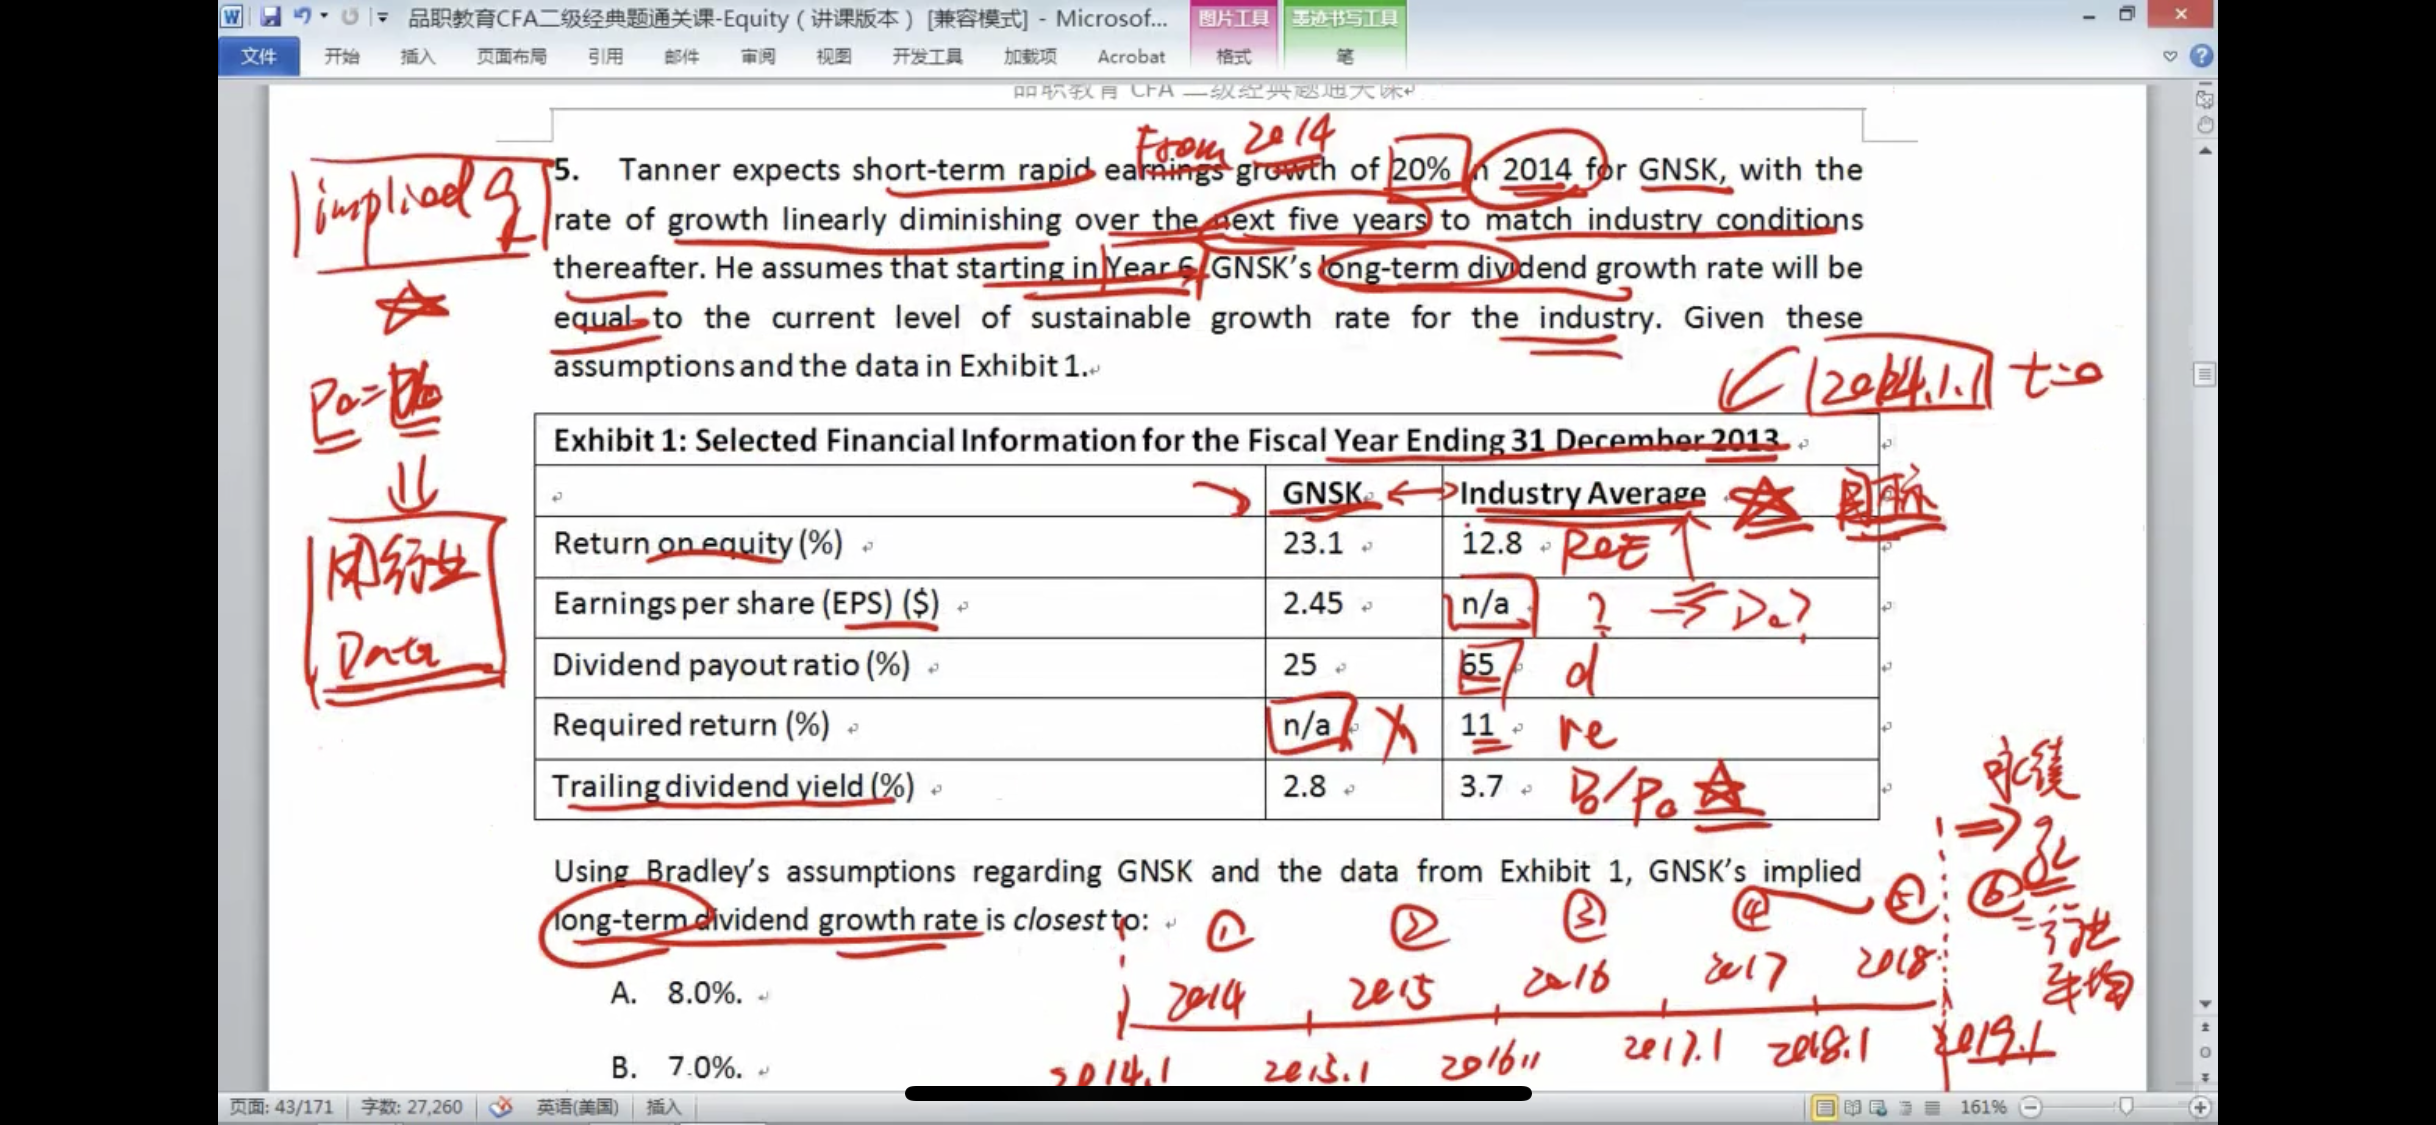 品职教育CFA二级经典题通关课-Equity（讲课版本）[兼容模式] - Microsof...
图片工具
墨迹书写工具
文件
开始
插入
页面布局
引用
邮件
审阅
视图
开发工具
加载项
Acrobat
格式
笔
品职教育 CFA 二级经典题通关课
From 2014
implied g
5. Tanner expects short-term rapid earnings growth of 20% in 2014 for GNSK, with the
rate of growth linearly diminishing over the next five years to match industry conditions
thereafter. He assumes that starting in Year 6, GNSK's long-term dividend growth rate will be
equal to the current level of sustainable growth rate for the industry. Given these
assumptions and the data in Exhibit 1.
2014.1.1 t=0
Exhibit 1: Selected Financial Information for the Fiscal Year Ending 31 December 2013
GNSK Industry Average
Return on equity (%) 23.1 12.8 ROE
Earnings per share (EPS) ($) 2.45 n/a ? D₀?
Dividend payout ratio (%) 25 65 d
Required return (%) n/a 11 re
Trailing dividend yield (%) 2.8 3.7 D₀/P₀
用行业
Data
永续
gL
= 行业
平均
Using Bradley's assumptions regarding GNSK and the data from Exhibit 1, GNSK's implied
long-term dividend growth rate is closest to:
① ② ③ ④ ⑤ ⑥
2014 2015 2016 2017 2018
A. 8.0%.
2014.1 2015.1 2016.1 2017.1 2018.1 2019.1
B. 7.0%.
页面: 43/171
字数: 27,260
英语(美国)
插入
161%